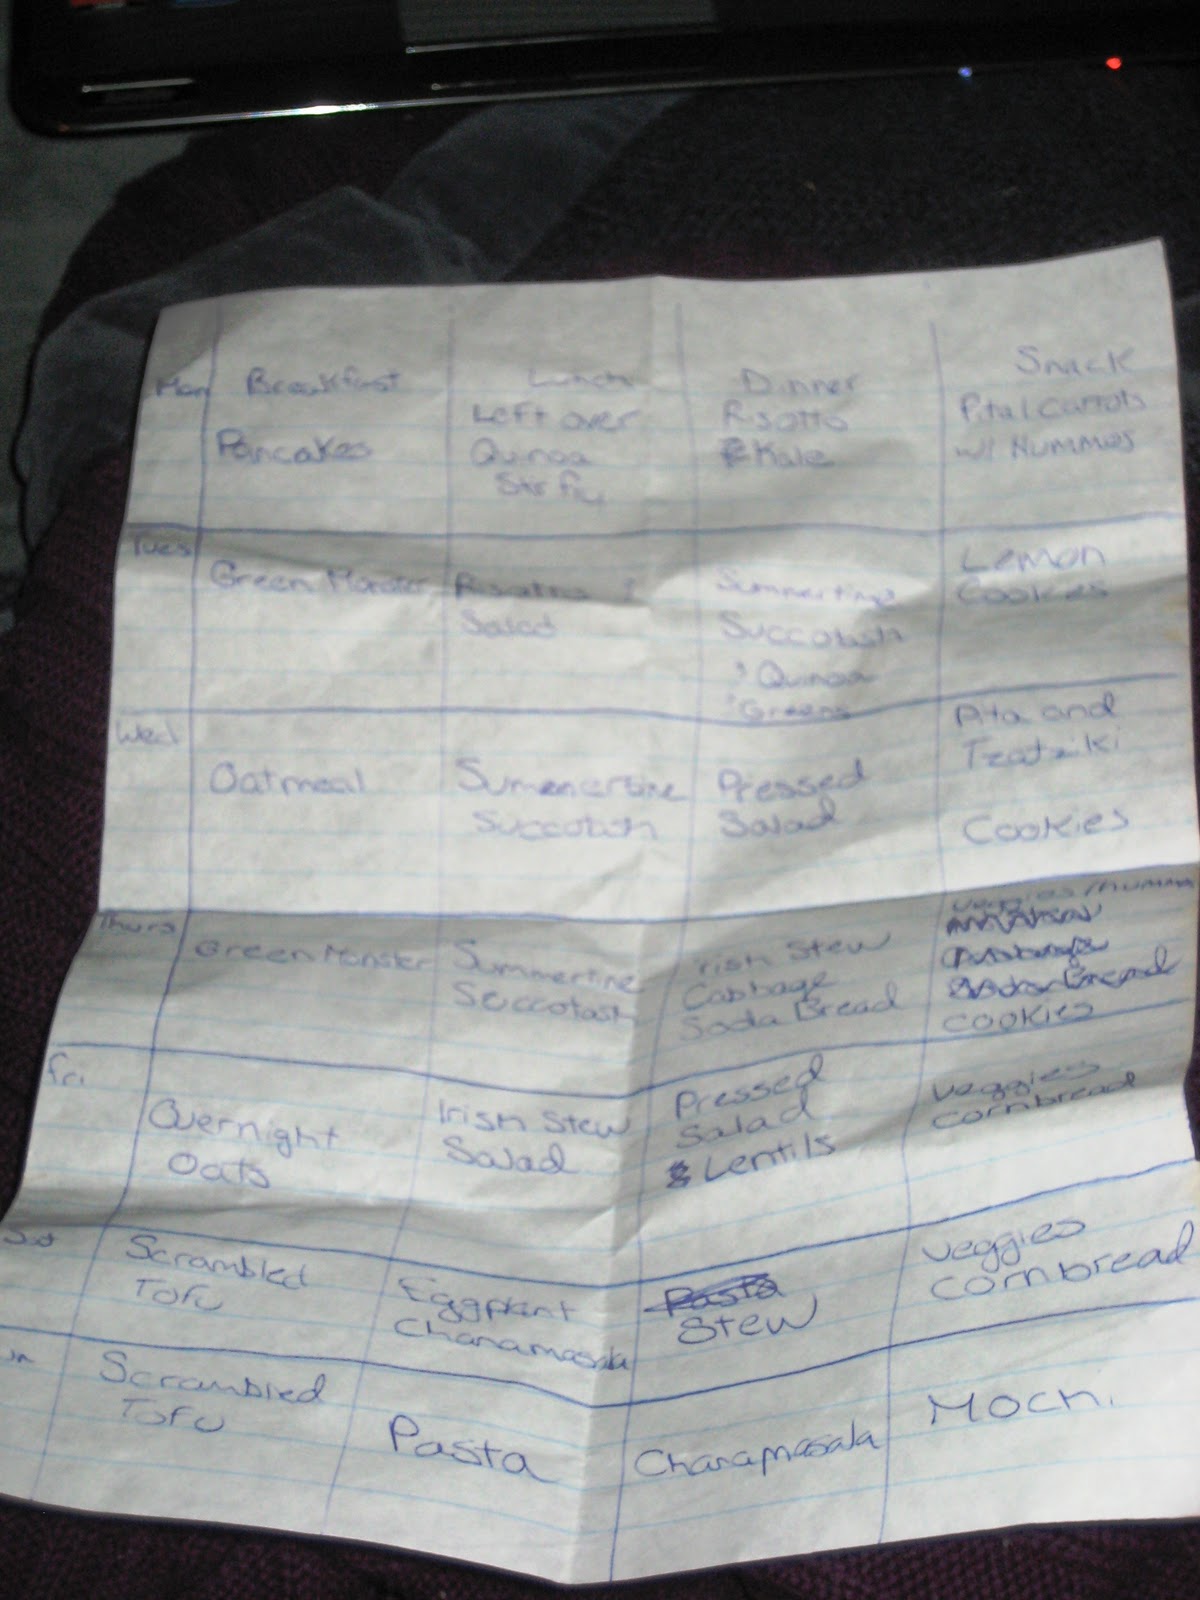 Mon Breakfast Lunch Dinner Snack
Pancakes
Left over
Quinoa
Stir fry
Risotto
Kale
Pita/Carrots
w/ Hummos
Tues
Green Monster
Risotto &
Salad
Summertime
Succotash
Quinoa
Greens
Lemon
Cookies
Wed
Oatmeal
Summertime
Succotash
Pressed
Salad
Pita and
Tzatziki
Cookies
Thurs
Green Monster
Summertime
Succotash
Irish Stew
Cabbage
Soda Bread
Veggies/Hummos
Cookies
Fri.
Overnight
Oats
Irish Stew
Salad
Pressed
Salad
& Lentils
Veggies
Cornbread
Sat
Scrambled
Tofu
Eggplant
Chanamasala
Pasta
Stew
Veggies
Cornbread
Scrambled
Tofu
Pasta
Chanamasala
Mochi